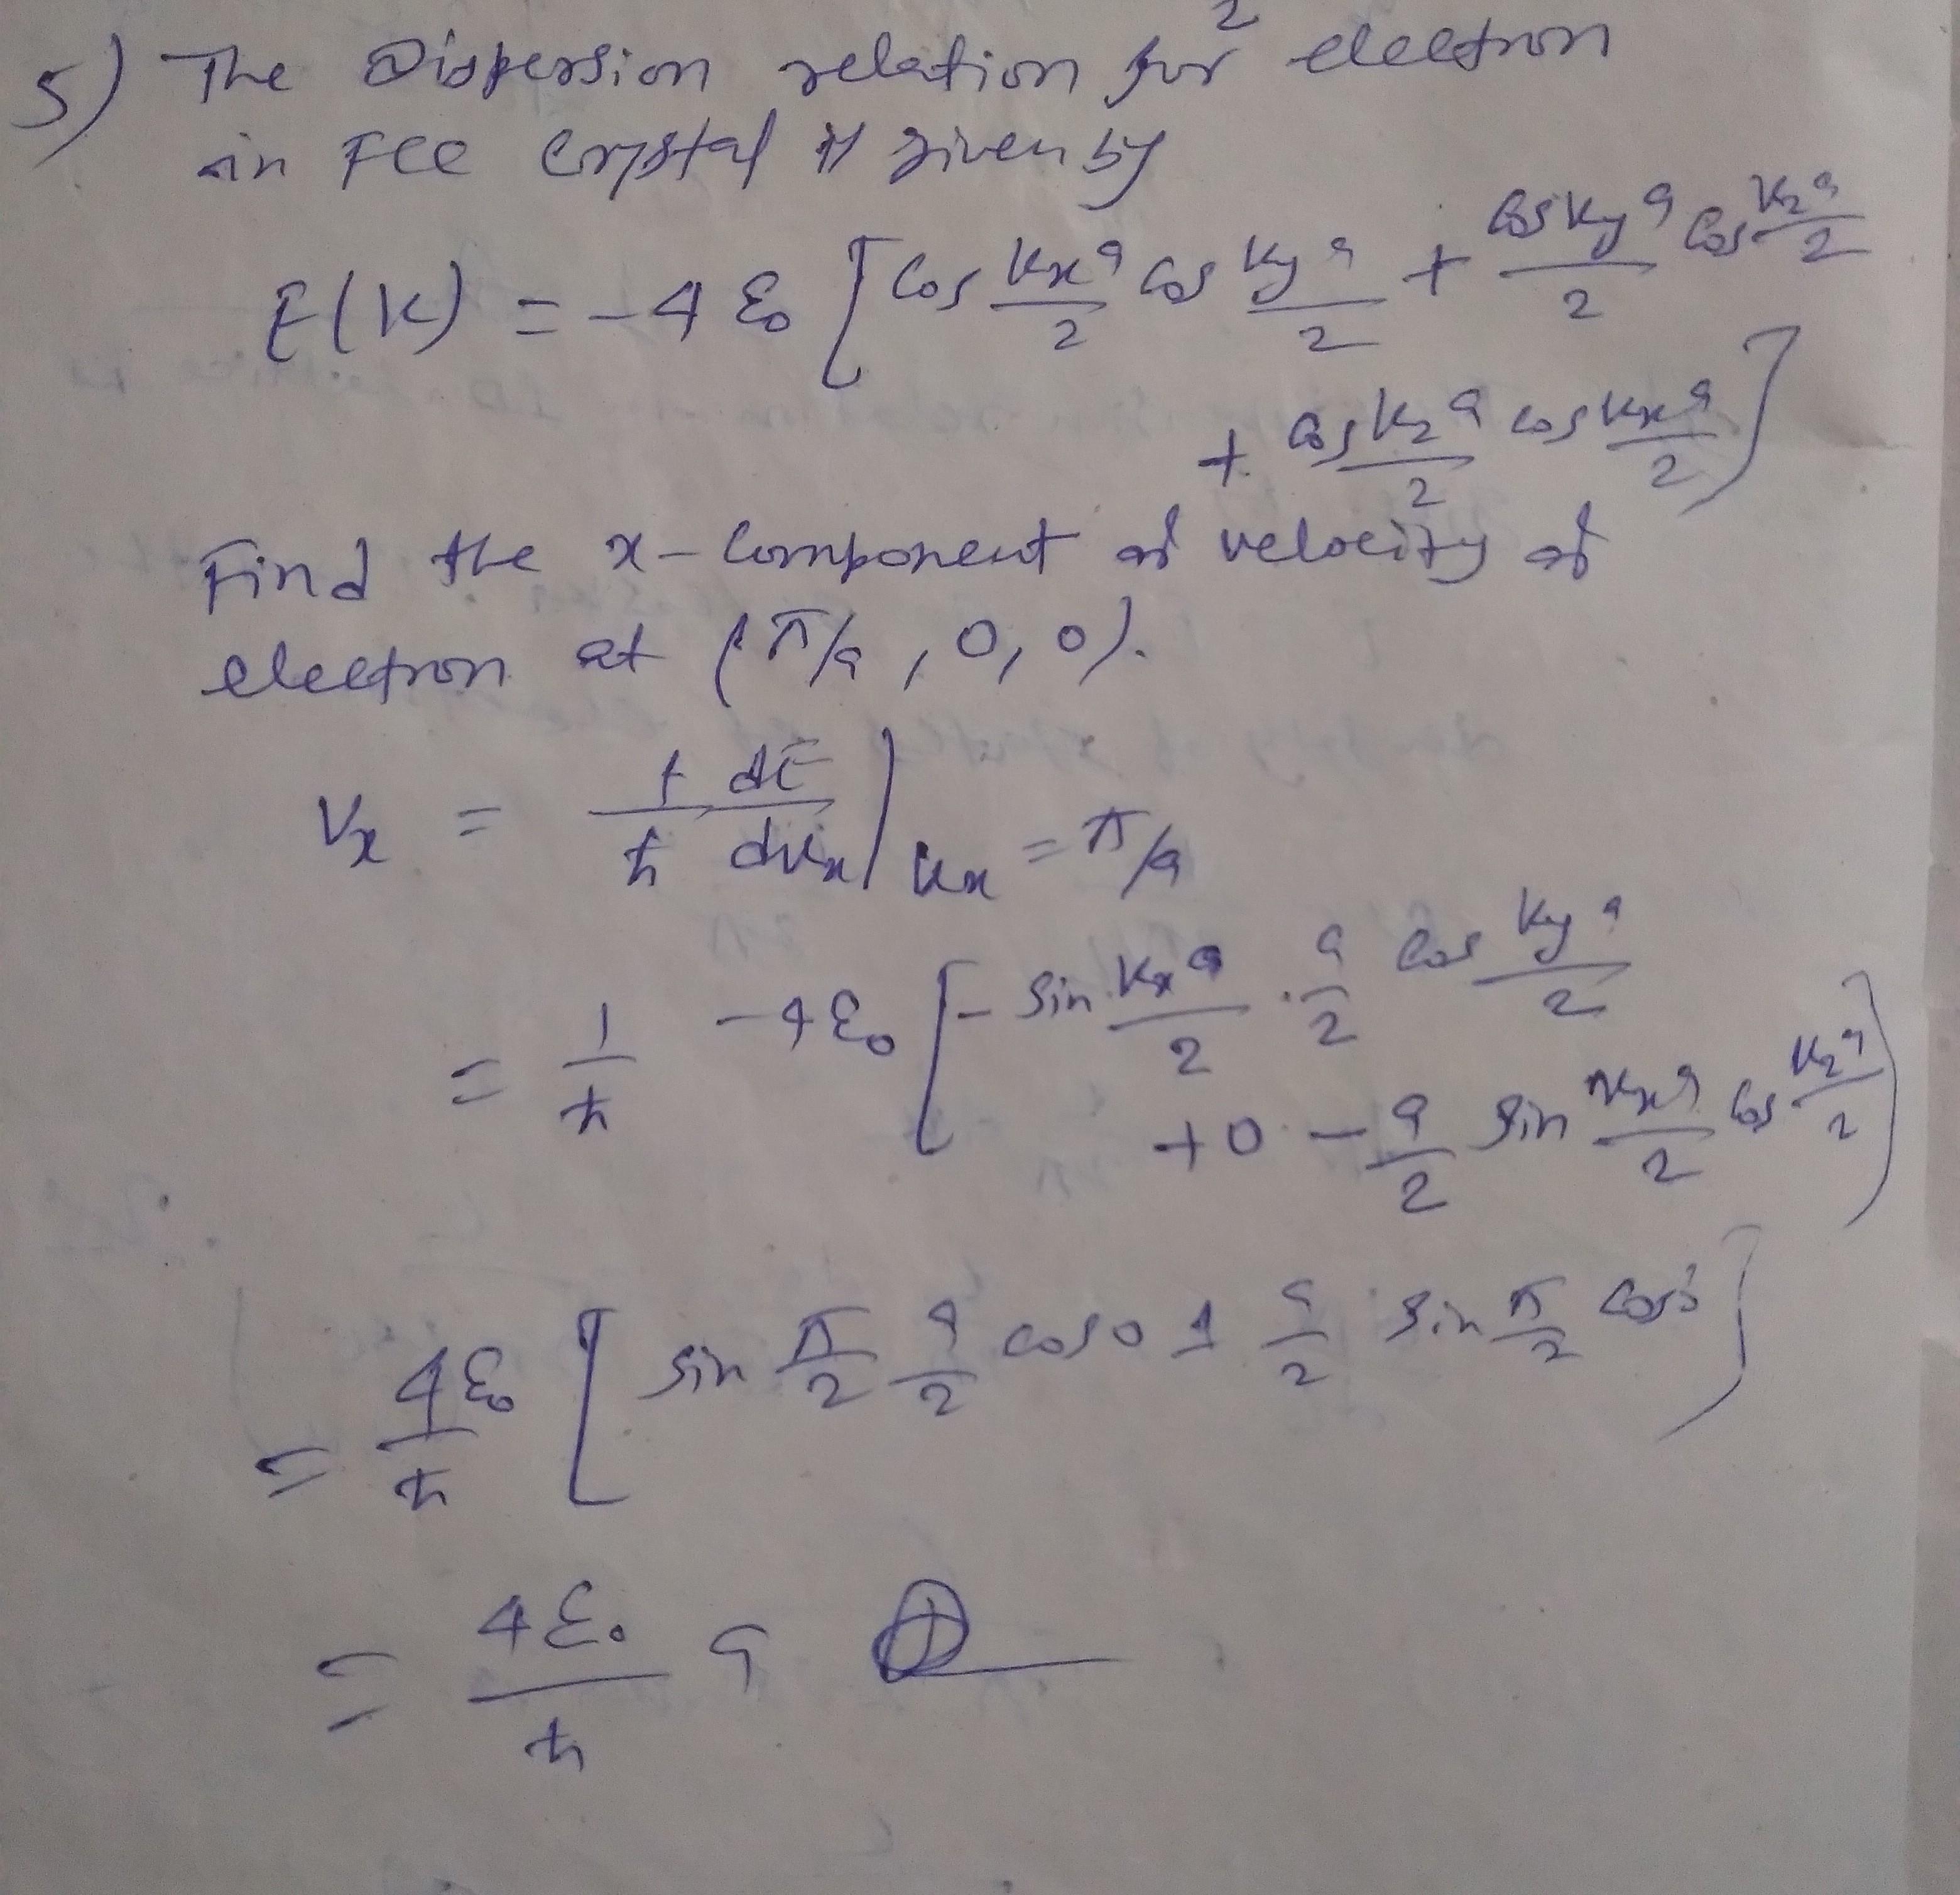 5) The Dispersion relation for electron
in FCC Crystal is given by
E(K) = -4 ε₀ [cos Kxa/2 cos Kya/2 + cos Kya/2 cos Kza/2
+ cos Kza/2 cos Kxa/2]
Find the x-component of velocity of
electron at (π/a, 0, 0).
Vx = 1/ħ dE/dKx | Kx = π/a
= 1/ħ -4ε₀ [- sin Kxa/2 · a/2 cos Kya/2
+0 - a/2 sin Kxa/2 cos Kza/2]
= 4ε₀/ħ [sin π/2 a/2 cos 0 + a/2 sin π/2 cos 0]
= 4ε₀/ħ a